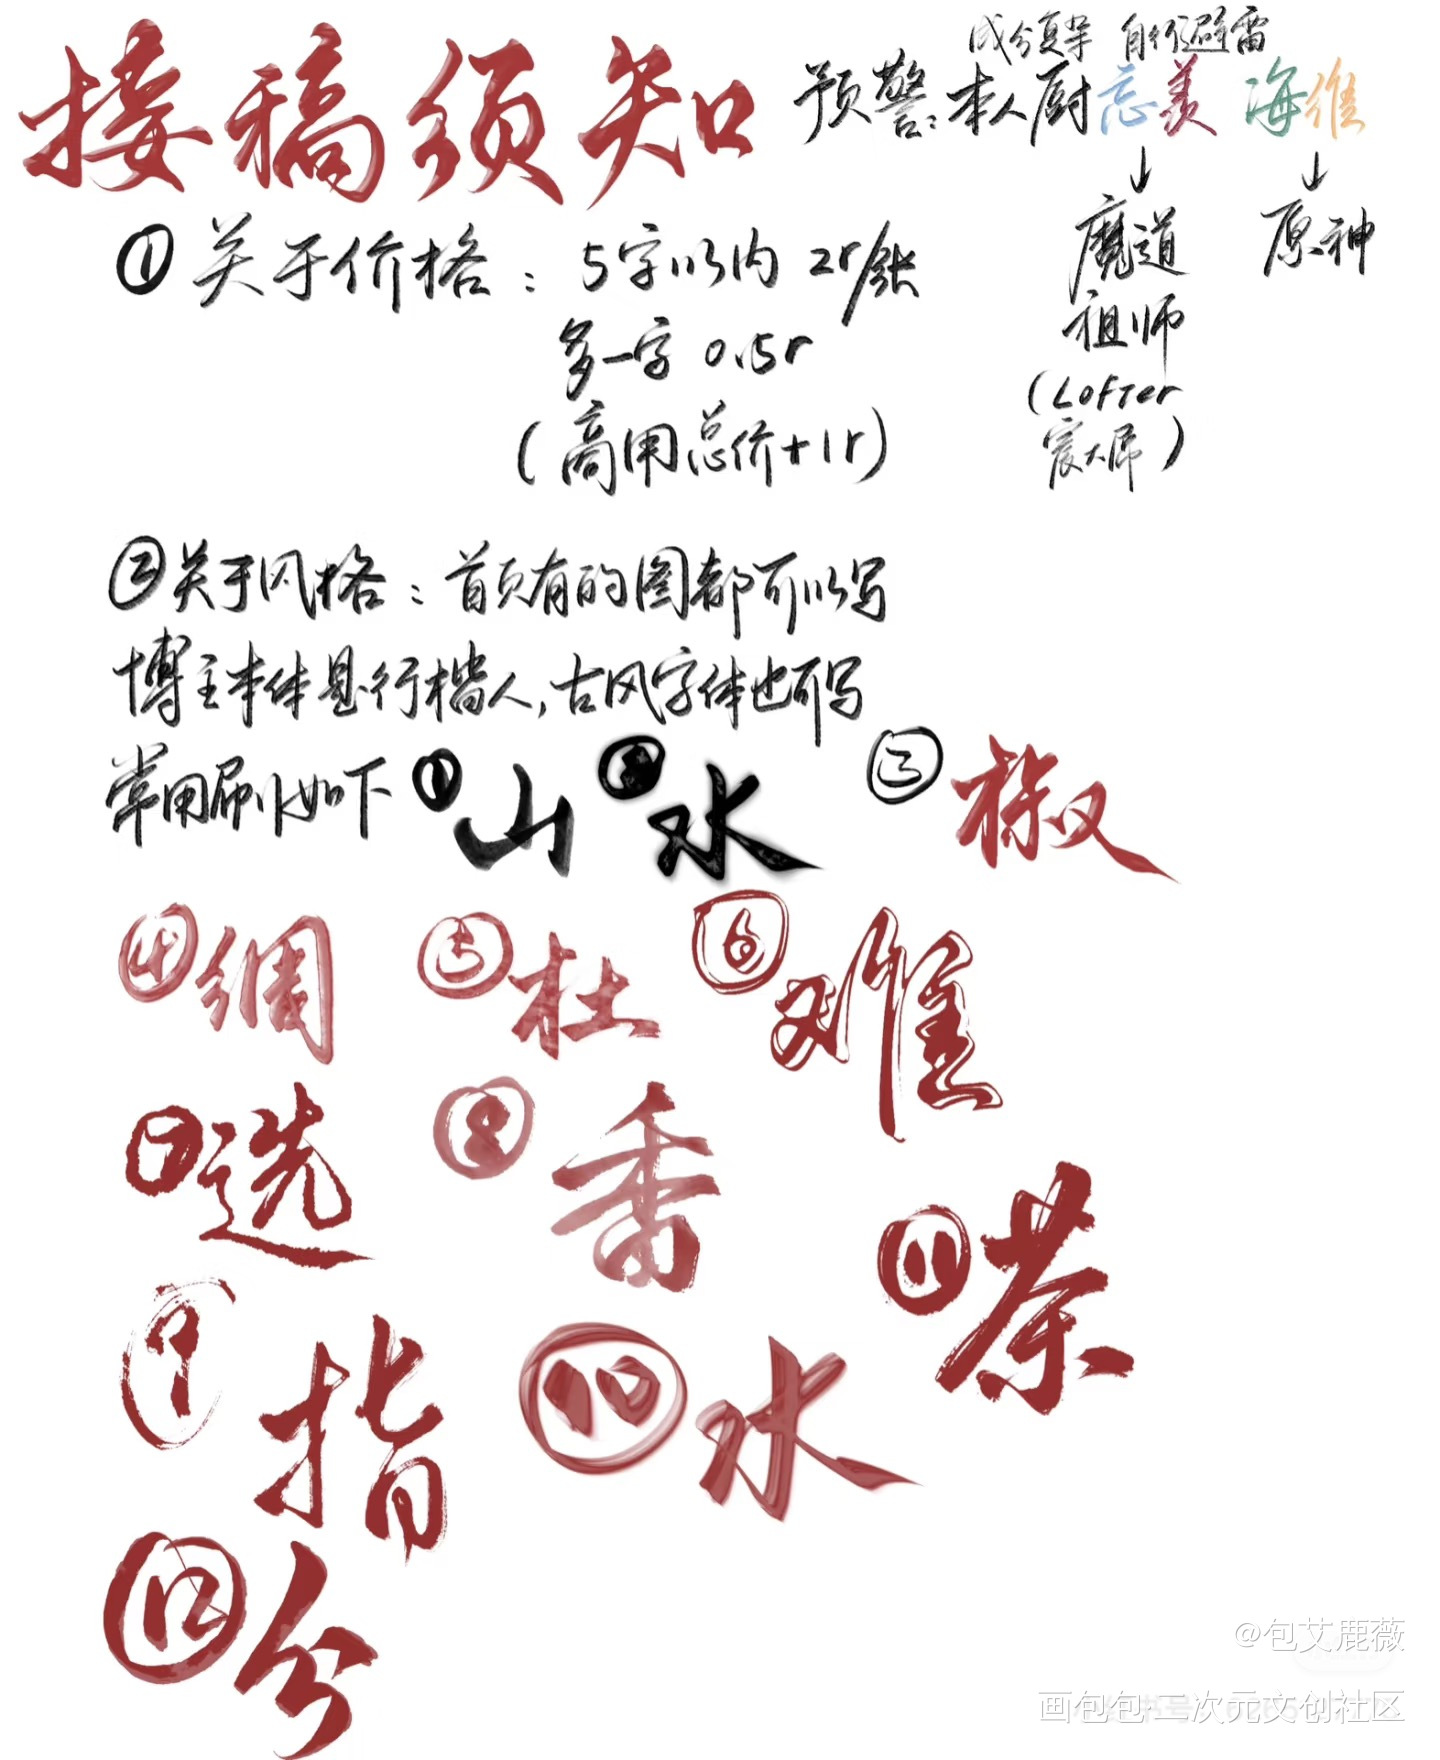 接稿须知
成分复杂 自行避雷
预警:本人厨忘羡 海维
↓ ↓
魔道 原神
祖师
(LOFTer
宸大房)
①关于价格:5字以内 2r/张
多一字 0.5r
(商用总价+1r)
②关于风格:首页有的图都可以写
博主本体是行楷人,古风字体也可写
常用刷如下 ①山 ②水 ③椒
④绸 ⑤杜 ⑥难
⑦选 ⑧香
⑨指 ⑩水 ⑪茶
⑫分
@包艾鹿薇
画包包·二次元文创社区